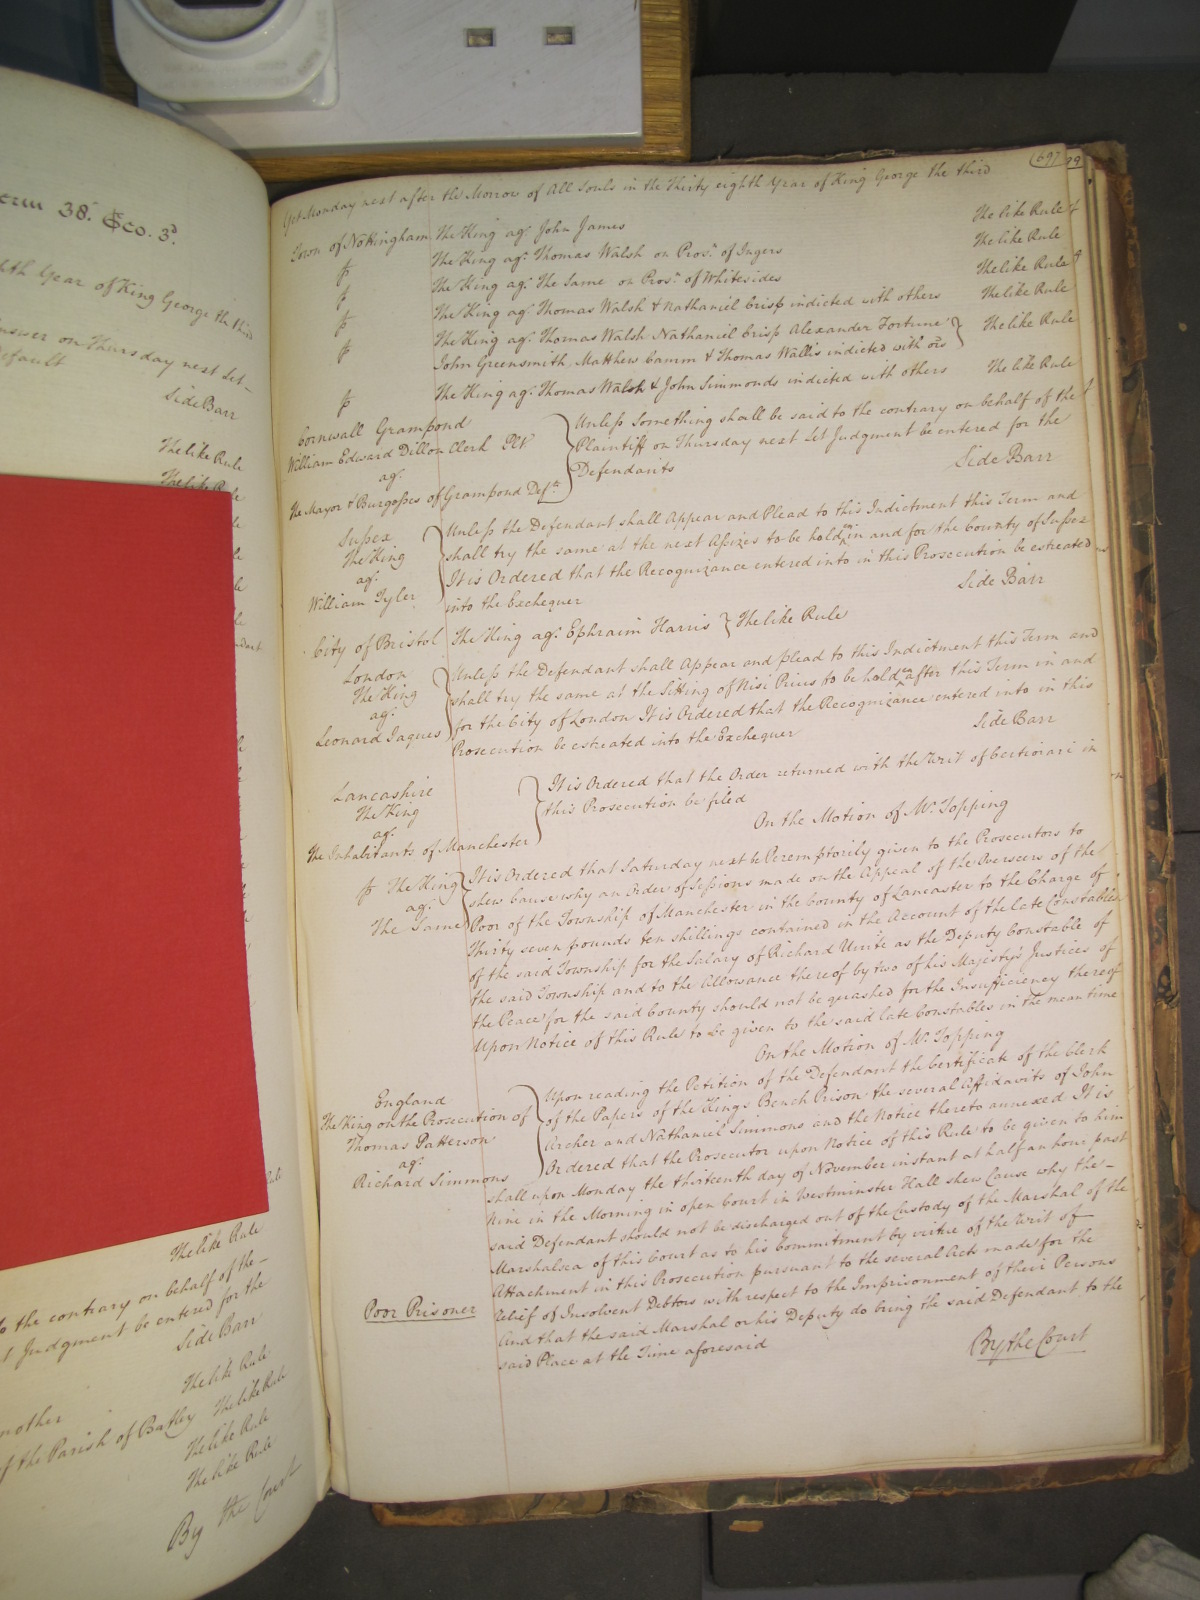 erm 38. Geo. 3d.
hth Year of King George the third
nswer on Thursday next Let
Default
Side Barr
The like Rule
The like Rule
The like Rule
to the contrary on behalf of the
t Judgment be entered for the
Side Barr
The like Rule
nother
of the Parish of Batley The like Rule
The like Rule
The like Rule
By the Court
697
Yet Monday next after the Morrow of All Souls in the Thirty eighth Year of King George the third
Town of Nottingham The King agt. John James The like Rule
The King agt. Thomas Walsh on Prosn. of Ingers The like Rule
The King agt. The Same on Prosn. of Whitesides The like Rule
The King agt. Thomas Walsh & Nathaniel Crisp indicted with others The like Rule
The King agt. Thomas Walsh Nathaniel Crisp Alexander Fortune The like Rule
John Greensmith Matthew Camm & Thomas Wallis indicted with ors
The King agt. Thomas Walsh & John Simmonds indicted with others The like Rule
Cornwall Grampond
William Edward Dillon Clerk Plt
agt.
The Mayor & Burgesses of Grampond Defts.
Unless Something shall be said to the contrary on behalf of the
Plaintiff on Thursday next Let Judgment be entered for the
Defendants Side Barr
Sussex
The King
agt.
William Tyler
Unless the Defendant shall Appear and Plead to this Indictment this Term and
shall try the same at the next Assizes to be holden in and for the County of Sussex
It is Ordered that the Recognizance entered into in this Prosecution be estreated
into the Exchequer Side Barr
City of Bristol The King agt. Ephraim Harris The like Rule
London
The King
agt.
Leonard Jaques
Unless the Defendant shall Appear and plead to this Indictment this Term and
shall try the same at the Sitting of Nisi Prius to be holden after this Term in and
for the City of London It is Ordered that the Recognizance entered into in this
Prosecution be estreated into the Exchequer Side Barr
Lancashire
The King
agt.
The Inhabitants of Manchester
It is Ordered that the Order returned with the Writ of Certiorari in
this Prosecution be filed
On the Motion of Mr. Topping
The King
agt.
The Same
It is Ordered that Saturday next be Peremptorily given to the Prosecutors to
shew Cause why an Order of Sessions made on the Appeal of the Overseers of the
Poor of the Township of Manchester in the County of Lancaster to the Charge of
Thirty seven pounds ten shillings contained in the Account of the late Constables
of the said Township for the Salary of Richard Unite as the Deputy Constable of
the said Township and to the Allowance thereof by two of his Majesty's Justices of
the Peace for the said County should not be quashed for the Insufficiency thereof
Upon Notice of this Rule to be given to the said late Constables in the mean time
On the Motion of Mr. Topping
England
The King on the Prosecution of
Thomas Patterson
agt.
Richard Simmons
Upon reading the Petition of the Defendant the Certificate of the Clerk
of the Papers of the Kings Bench Prison the several Affidavits of John
Archer and Nathaniel Simmons and the Notice thereto annexed It is
Ordered that the Prosecutor upon Notice of this Rule to be given to him
shall upon Monday the thirteenth day of November instant at half an hour past
Nine in the Morning in open Court in Westminster Hall shew Cause why the
said Defendant should not be discharged out of the Custody of the Marshal of the
Marshalsea of this Court as to his Commitment by virtue of the Writ of
Attachment in this Prosecution pursuant to the several Acts made for the
Poor Prisoner relief of Insolvent Debtors with respect to the Imprisonment of their Persons
And that the said Marshal or his Deputy do bring the said Defendant to the
said Place at the Time aforesaid
By the Court